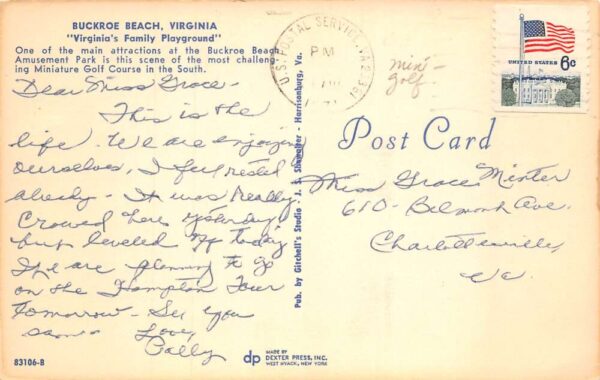 BUCKROE BEACH, VIRGINIA
"Virginia's Family Playground"
One of the main attractions at the Buckroe Beach
Amusement Park is this scene of the most challeng-
ing Miniature Golf Course in the South.
Dear Miss Grace -
This is the
life. We are enjoying
ourselves, I feel rested
already - It was Really
Crowed here yesterday
but leveled off today
We are planning to go
on the Hampton Tour
tomorrow - See you
soon
Love,
83106-B
Pub. by Gitchell's Studio - J. S. - Harrisonburg, Va.
U.S. POSTAL SERVICE, VA
PM
mini-
golf-
UNITED STATES 6c
Post Card
Miss Grace Minter
610 - Belmont Ave.
Charlottesville,
Va.
dp
MADE BY
DEXTER PRESS, INC.
WEST NYACK, NEW YORK